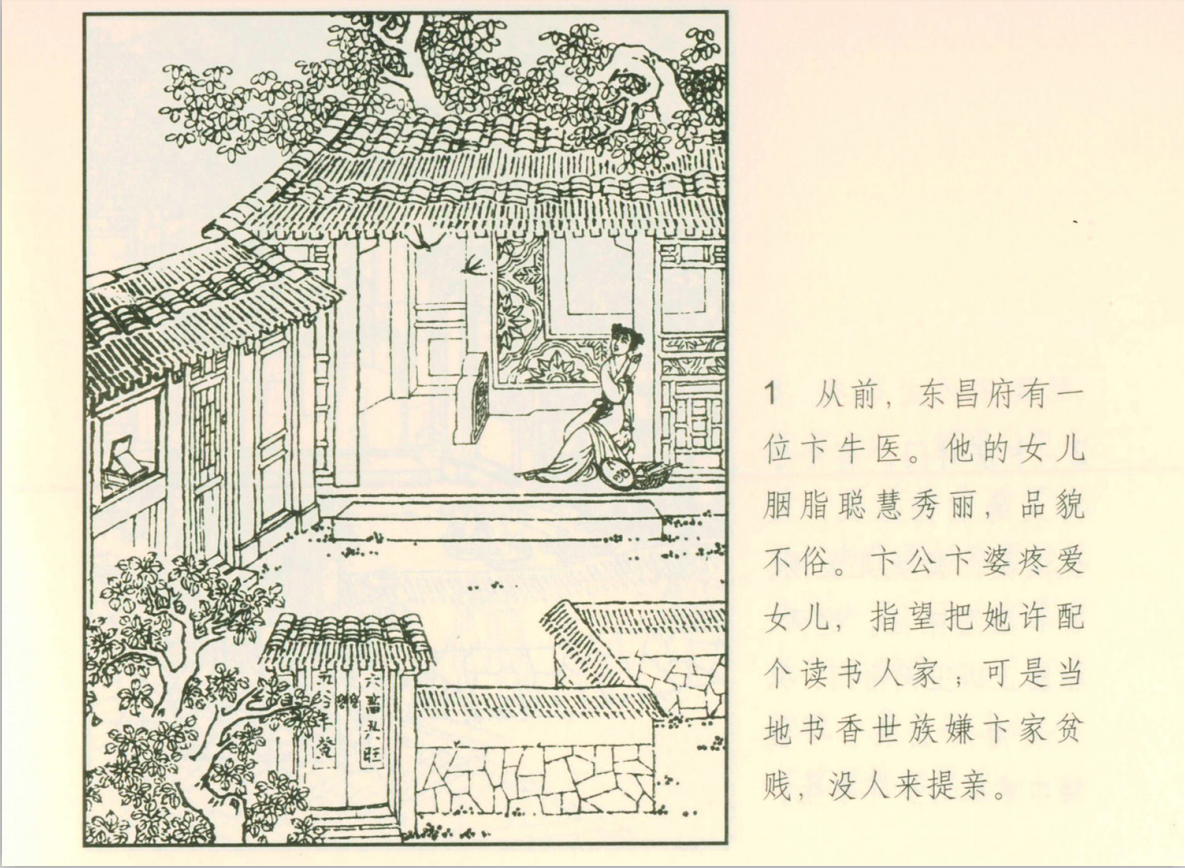 1 从前，东昌府有一
位卞牛医。他的女儿
胭脂聪慧秀丽，品貌
不俗。卞公卞婆疼爱
女儿，指望把她许配
个读书人家；可是当
地书香世族嫌卞家贫
贱，没人来提亲。
六畜兴旺
五谷丰登